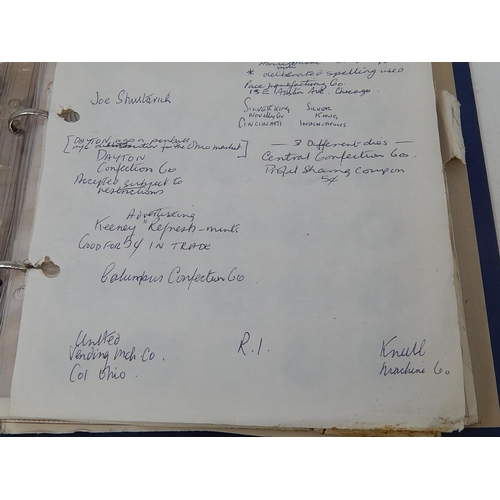 * deliberated spelling used
Pace Manufacturing Co.
Ave. Chicago.
Joe Shubarich
SILVER KING
NOVELTY Co
CINCINATI
SILVER
KING
INDIANAPOLIS
[DAYTON was a penbale
for the Ohio market]
DAYTON
Confection Co
Accepted subject to
restrictions
— 3 Different dies —
Central Confection Co.
Profit Sharing coupon
5¢
Advertising
Keeney "Refresh-mints
GOOD FOR 5¢ IN TRADE
Columbus Confection Co
United
Vending Mch Co.
Col Ohio.
R.I.
Knull
Machine Co